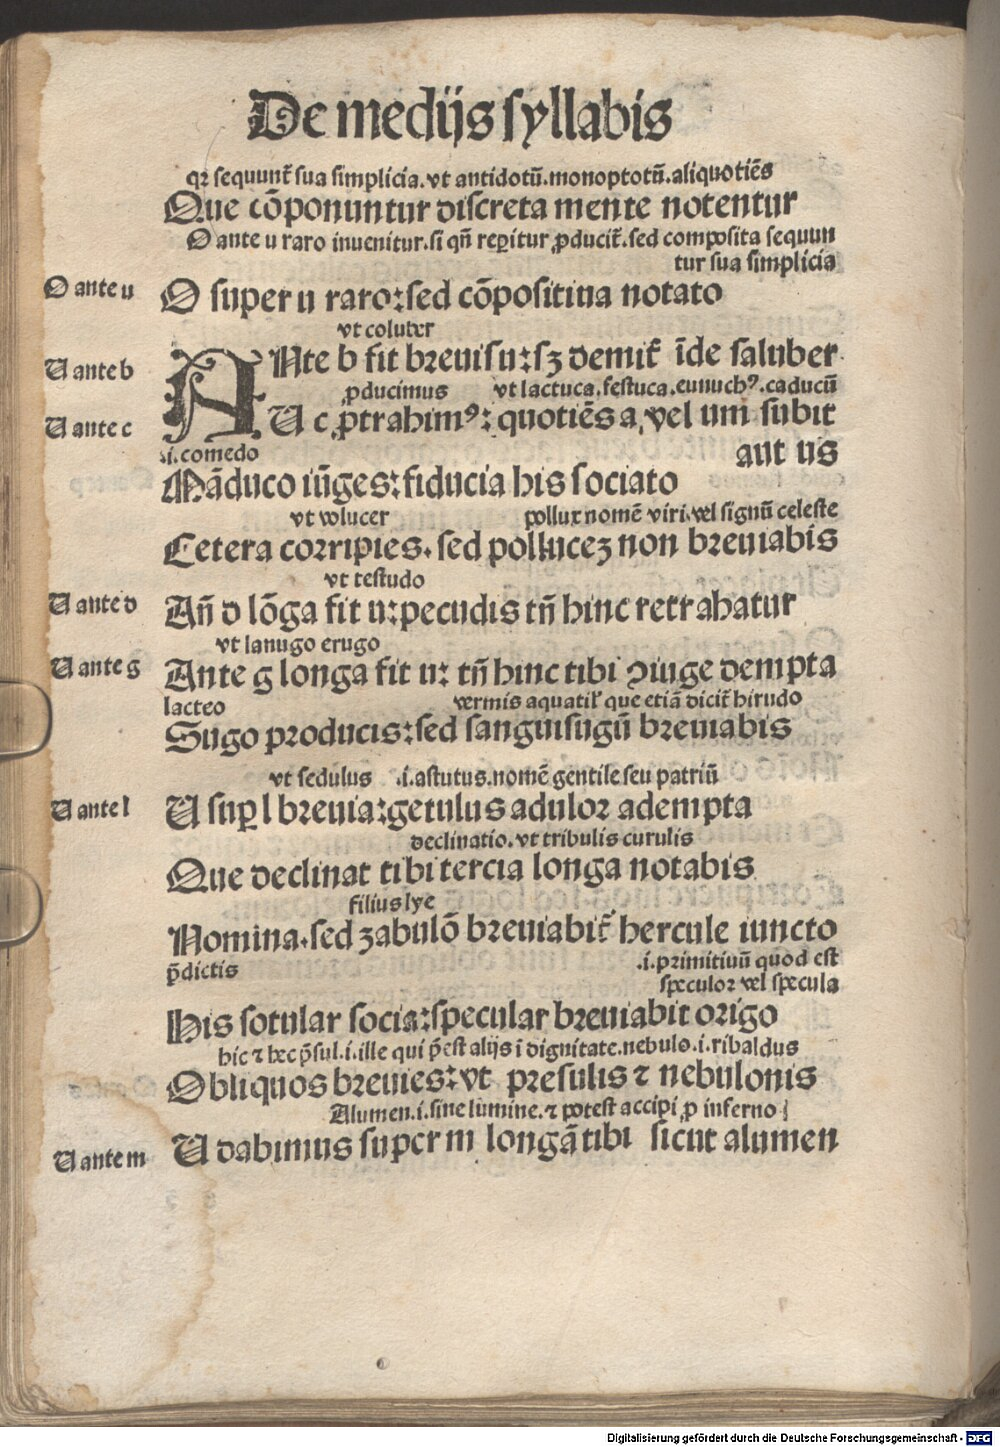 De medijs syllabis
qꝛ sequunt̃ sua simplicia. vt antidotũ. monoptotũ. aliquotiẽs
Que cõponuntur discreta mente notentur
O ante u raro inuenitur. si qñ reꝑitur ꝓducit̃. sed composita sequun
tur sua simplicia
O ante u
O super u raro: sed cõpositiua notato
vt coluber
U ante b
ANte b fit breuis u: sꝫ demit̃ ĩde saluber
ꝓducimus vt lactuca. festuca. eunuchꝰ. caducũ
U ante c
U c ꝓtrahimꝰ: quotiẽs a, vel um subit
aut us
.i. comedo
Mãduco iũges: fiducia his sociato
vt volucer pollux nomẽ viri. vel signũ celeste
Cetera corripies. sed polluceꝫ non breuiabis
vt testudo
U ante d
Añ d lõga fit u: pecudis tñ hinc retrahatur
vt lanugo erugo
U ante g
Ante g longa fit u: tñ hinc tibi ꝯiuge dempta
lacteo vermis aquatil̛ que etiã dicit̃ hirudo
Sugo producis: sed sanguisugũ breuiabis
vt sedulus .i. astutus. nomẽ gentile seu patriũ
U ante l
U suꝑ l breuia: getulus adulor adempta
declinatio. vt tribulis curulis
Que declinat tibi tercia longa notabis
filius lye
Nomina. sed zabulõ breuiabit̃ hercule iuncto
p̃dictis .i. primitiuũ quod est
speculor vel specula
His sotular socia: specular breuiabit origo
hic ⁊ hec p̃sul .i. ille qui p̃est alijs ĩ dignitate. nebulo .i. ribaldus
Obliquos breuies: vt presulis ⁊ nebulonis
Alumen .i. sine lumine. ⁊ potest accipi ꝓ inferno
U ante m
U dabimus super m longã tibi sicut alumen
Digitalisierung gefördert durch die Deutsche Forschungsgemeinschaft - DFG